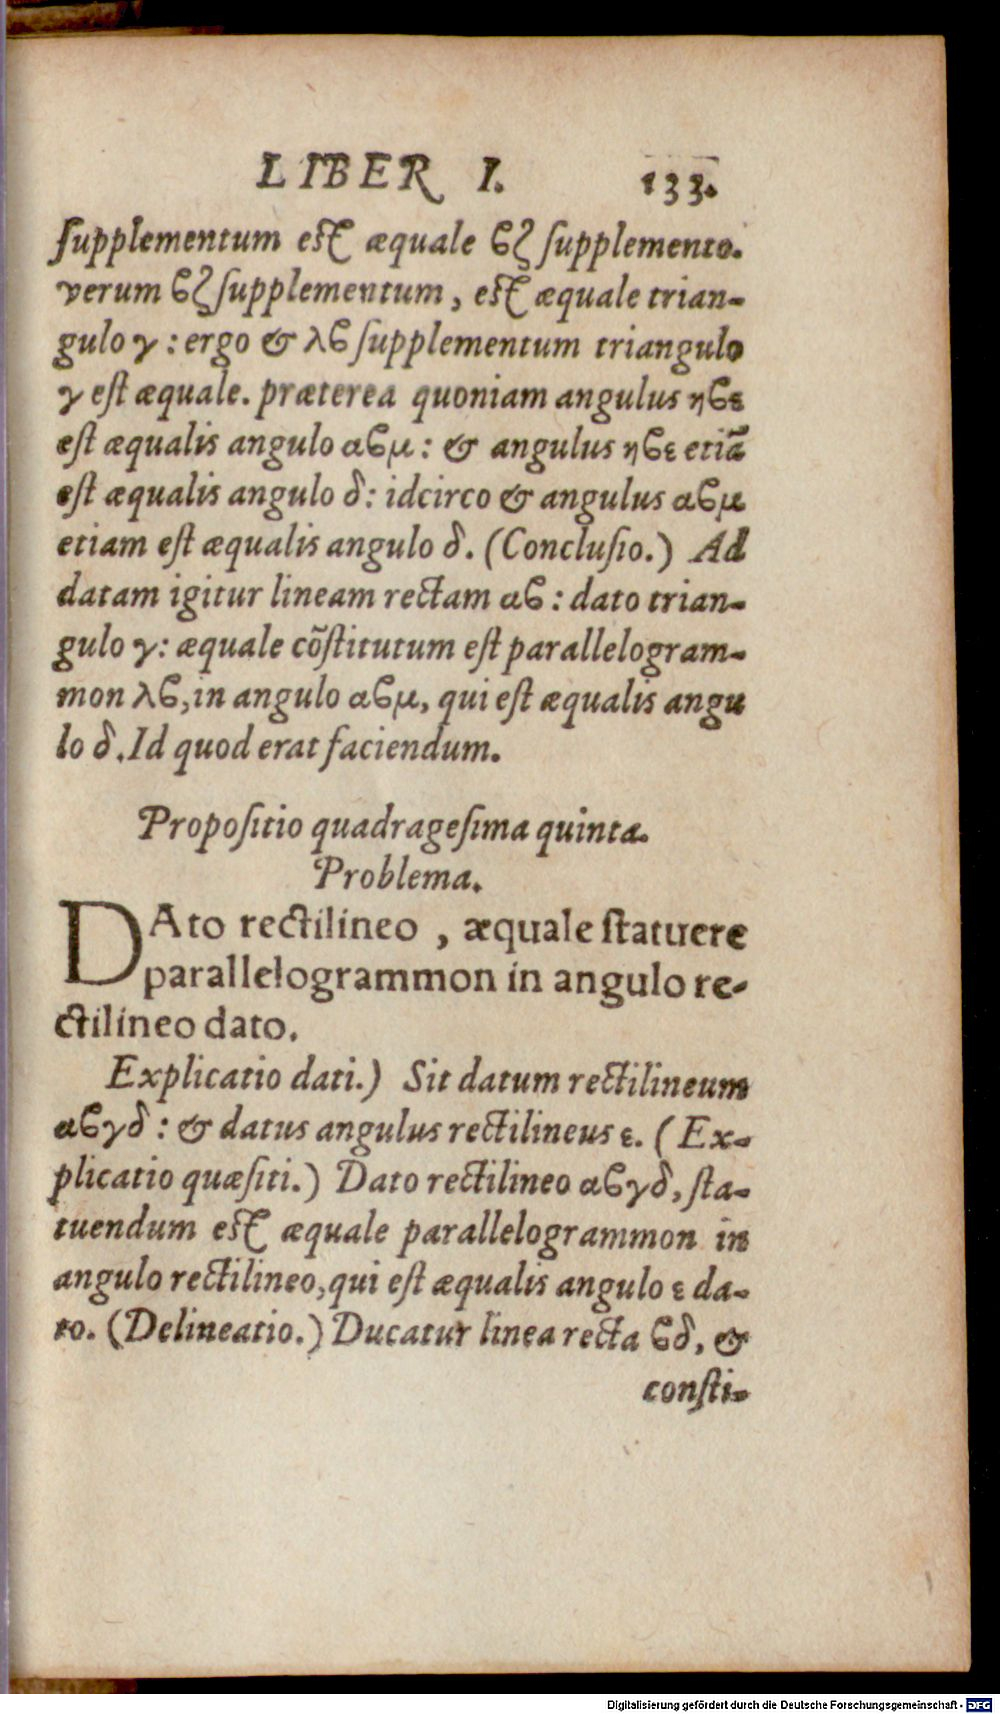 LIBER I. 133.
ſupplementum eſt æquale ϐζ ſupplemento.
verum ϐζ ſupplementum, eſt æquale trian-
gulo γ: ergo & λϐ ſupplementum triangulo
γ eſt æquale. præterea quoniam angulus ηϐε
eſt æqualis angulo αϐμ: & angulus ηϐε etiã
eſt æqualis angulo δ: idcirco & angulus αϐμ
etiam eſt æqualis angulo δ. (Concluſio.) Ad
datam igitur lineam rectam αϐ: dato trian-
gulo γ: æquale cõſtitutum eſt parallelogram-
mon λϐ, in angulo αϐμ, qui eſt æqualis angu
lo δ. Id quod erat faciendum.
Propoſitio quadrageſima quinta.
Problema.
DAto rectilineo, æquale ſtatuere
parallelogrammon in angulo re-
ctilineo dato.
Explicatio dati.) Sit datum rectilineum
αϐγδ: & datus angulus rectilineus ε. (Ex-
plicatio quæſiti.) Dato rectilineo αϐγδ, ſta-
tuendum eſt æquale parallelogrammon in
angulo rectilineo, qui eſt æqualis angulo ε da-
to. (Delineatio.) Ducatur linea recta ϐδ, &
conſti-
Digitalisierung gefördert durch die Deutsche Forschungsgemeinschaft - DFG